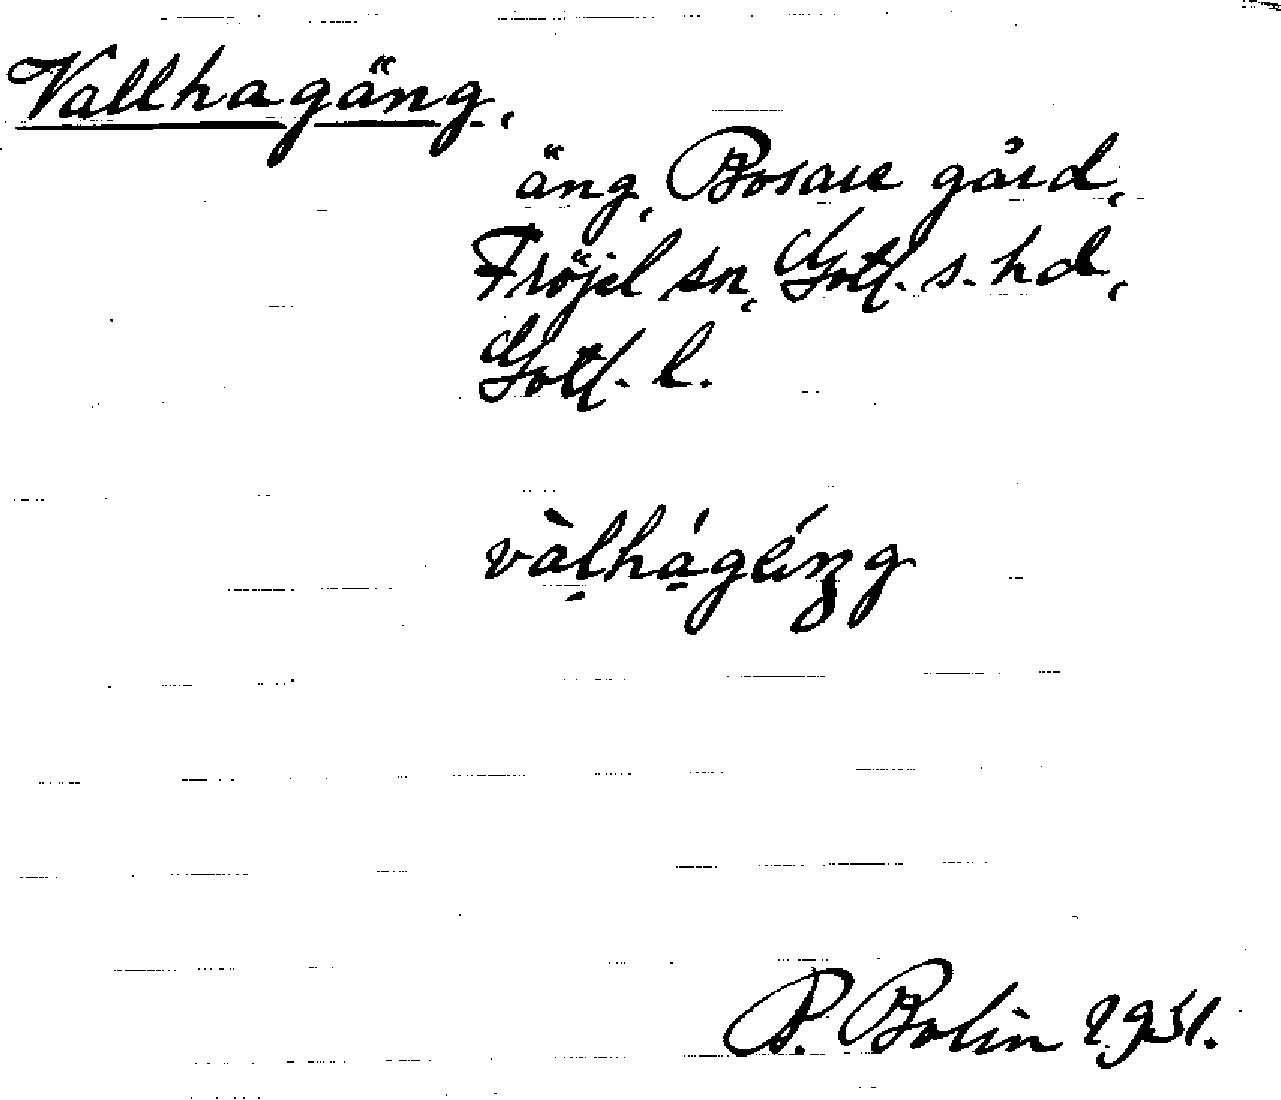 Vallhagäng,
äng, Bosare gård,
Fröjel sn, Gotl. s. hd,
Gotl. l.
vàl̠há̠géŋg
P. Bolin 1931.